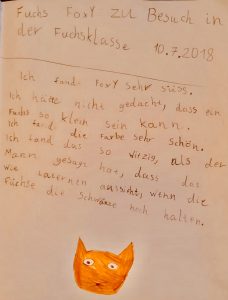 Fuchs Foxy zu Besuch in
der Fuchsklasse 10.7.2018
Ich fand Foxy sehr süss.
Ich hätte nicht gedacht, dass ein
Fuchs so klein sein kann.
Ich fand die Farbe sehr schön.
Ich fand das so witzig, als der
Mann gesagt hat, dass das
wie Laternen aussieht, wenn die
Füchse die Schwänze hoch halten.